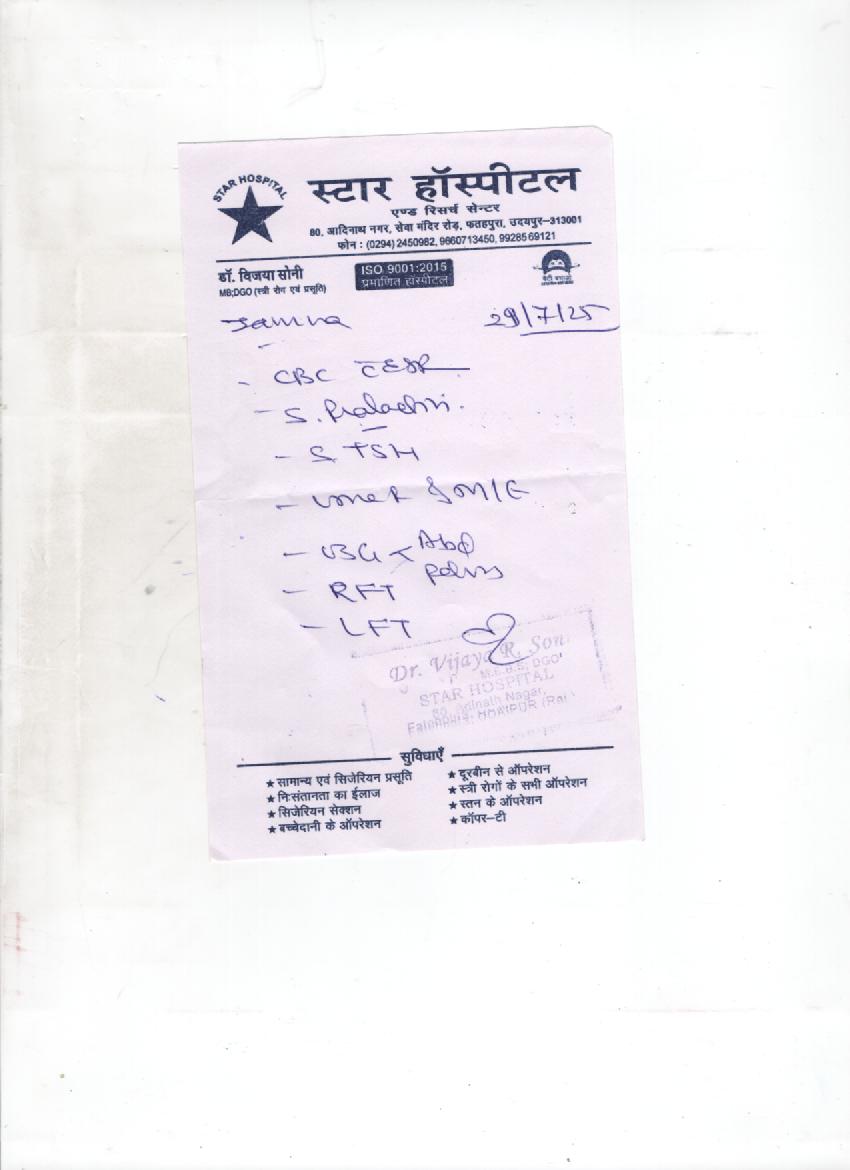 STAR HOSPITAL
स्टार हॉस्पीटल
एण्ड रिसर्च सेन्टर
80, आदिनाथ नगर, सेवा मंदिर रोड़, फतहपुरा, उदयपुर–313001
फोन : (0294) 2450982, 9660713450, 9928569121
डॉ. विजया सोनी
MB;DGO (स्त्री रोग एवं प्रसूति)
ISO 9001:2015
प्रमाणित हॉस्पीटल
Jamna 29/7/25
- CBC ESR
- S. Prolactin.
- S TSH
- Urine R & M/E
- USG < Abd
Pelvis
- RFT
- LFT
Dr. Vijaya R. Soni
M.B.B.S, DGO
STAR HOSPITAL
80, Adinath Nagar,
Fatehpura, UDAIPUR (Raj.)
सुविधाएँ
★ सामान्य एवं सिजेरियन प्रसूति
★ निःसंतानता का ईलाज
★ सिजेरियन सेक्शन
★ बच्चेदानी के ऑपरेशन
★ दूरबीन से ऑपरेशन
★ स्त्री रोगों के सभी ऑपरेशन
★ स्तन के ऑपरेशन
★ कॉपर–टी